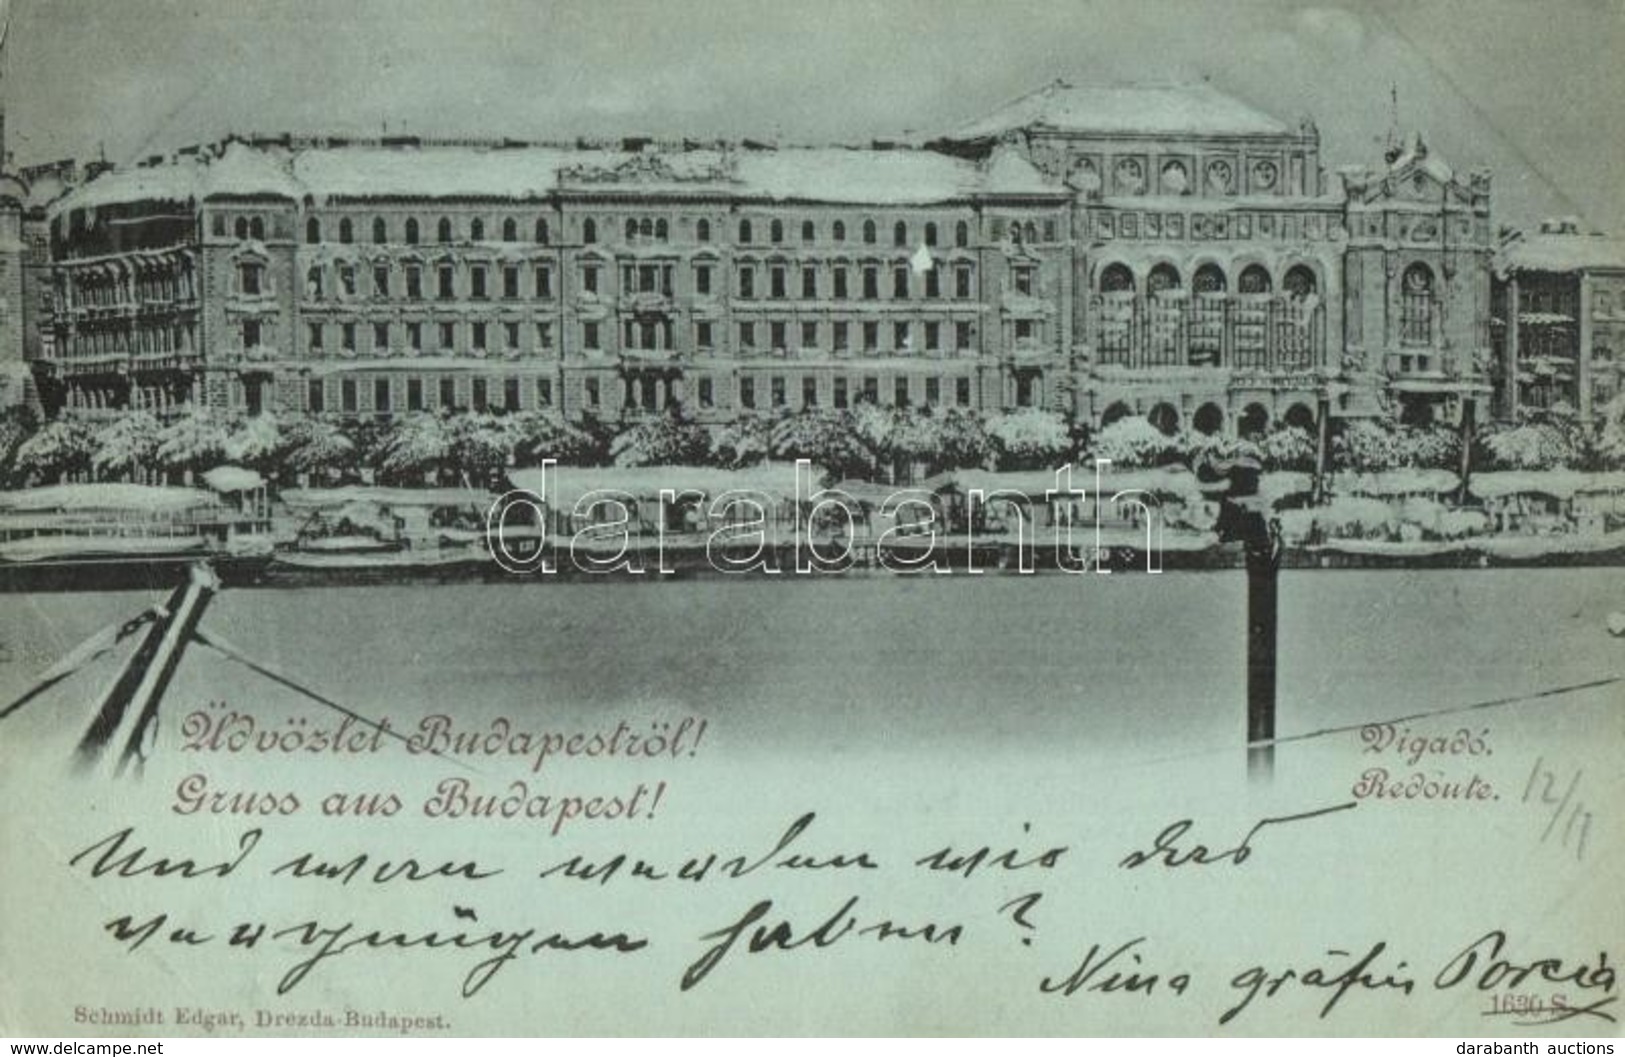 darabanth
Üdvözlet Budapestről!
Gruss aus Budapest!
Vigadó.
Redoute.
12/11
Und wan werden wir das
vergnügen haben?
Nina gräfin Porcia
Schmidt Edgar, Drezda-Budapest.
1630 S
www.delcampe.net
darabanth auctions